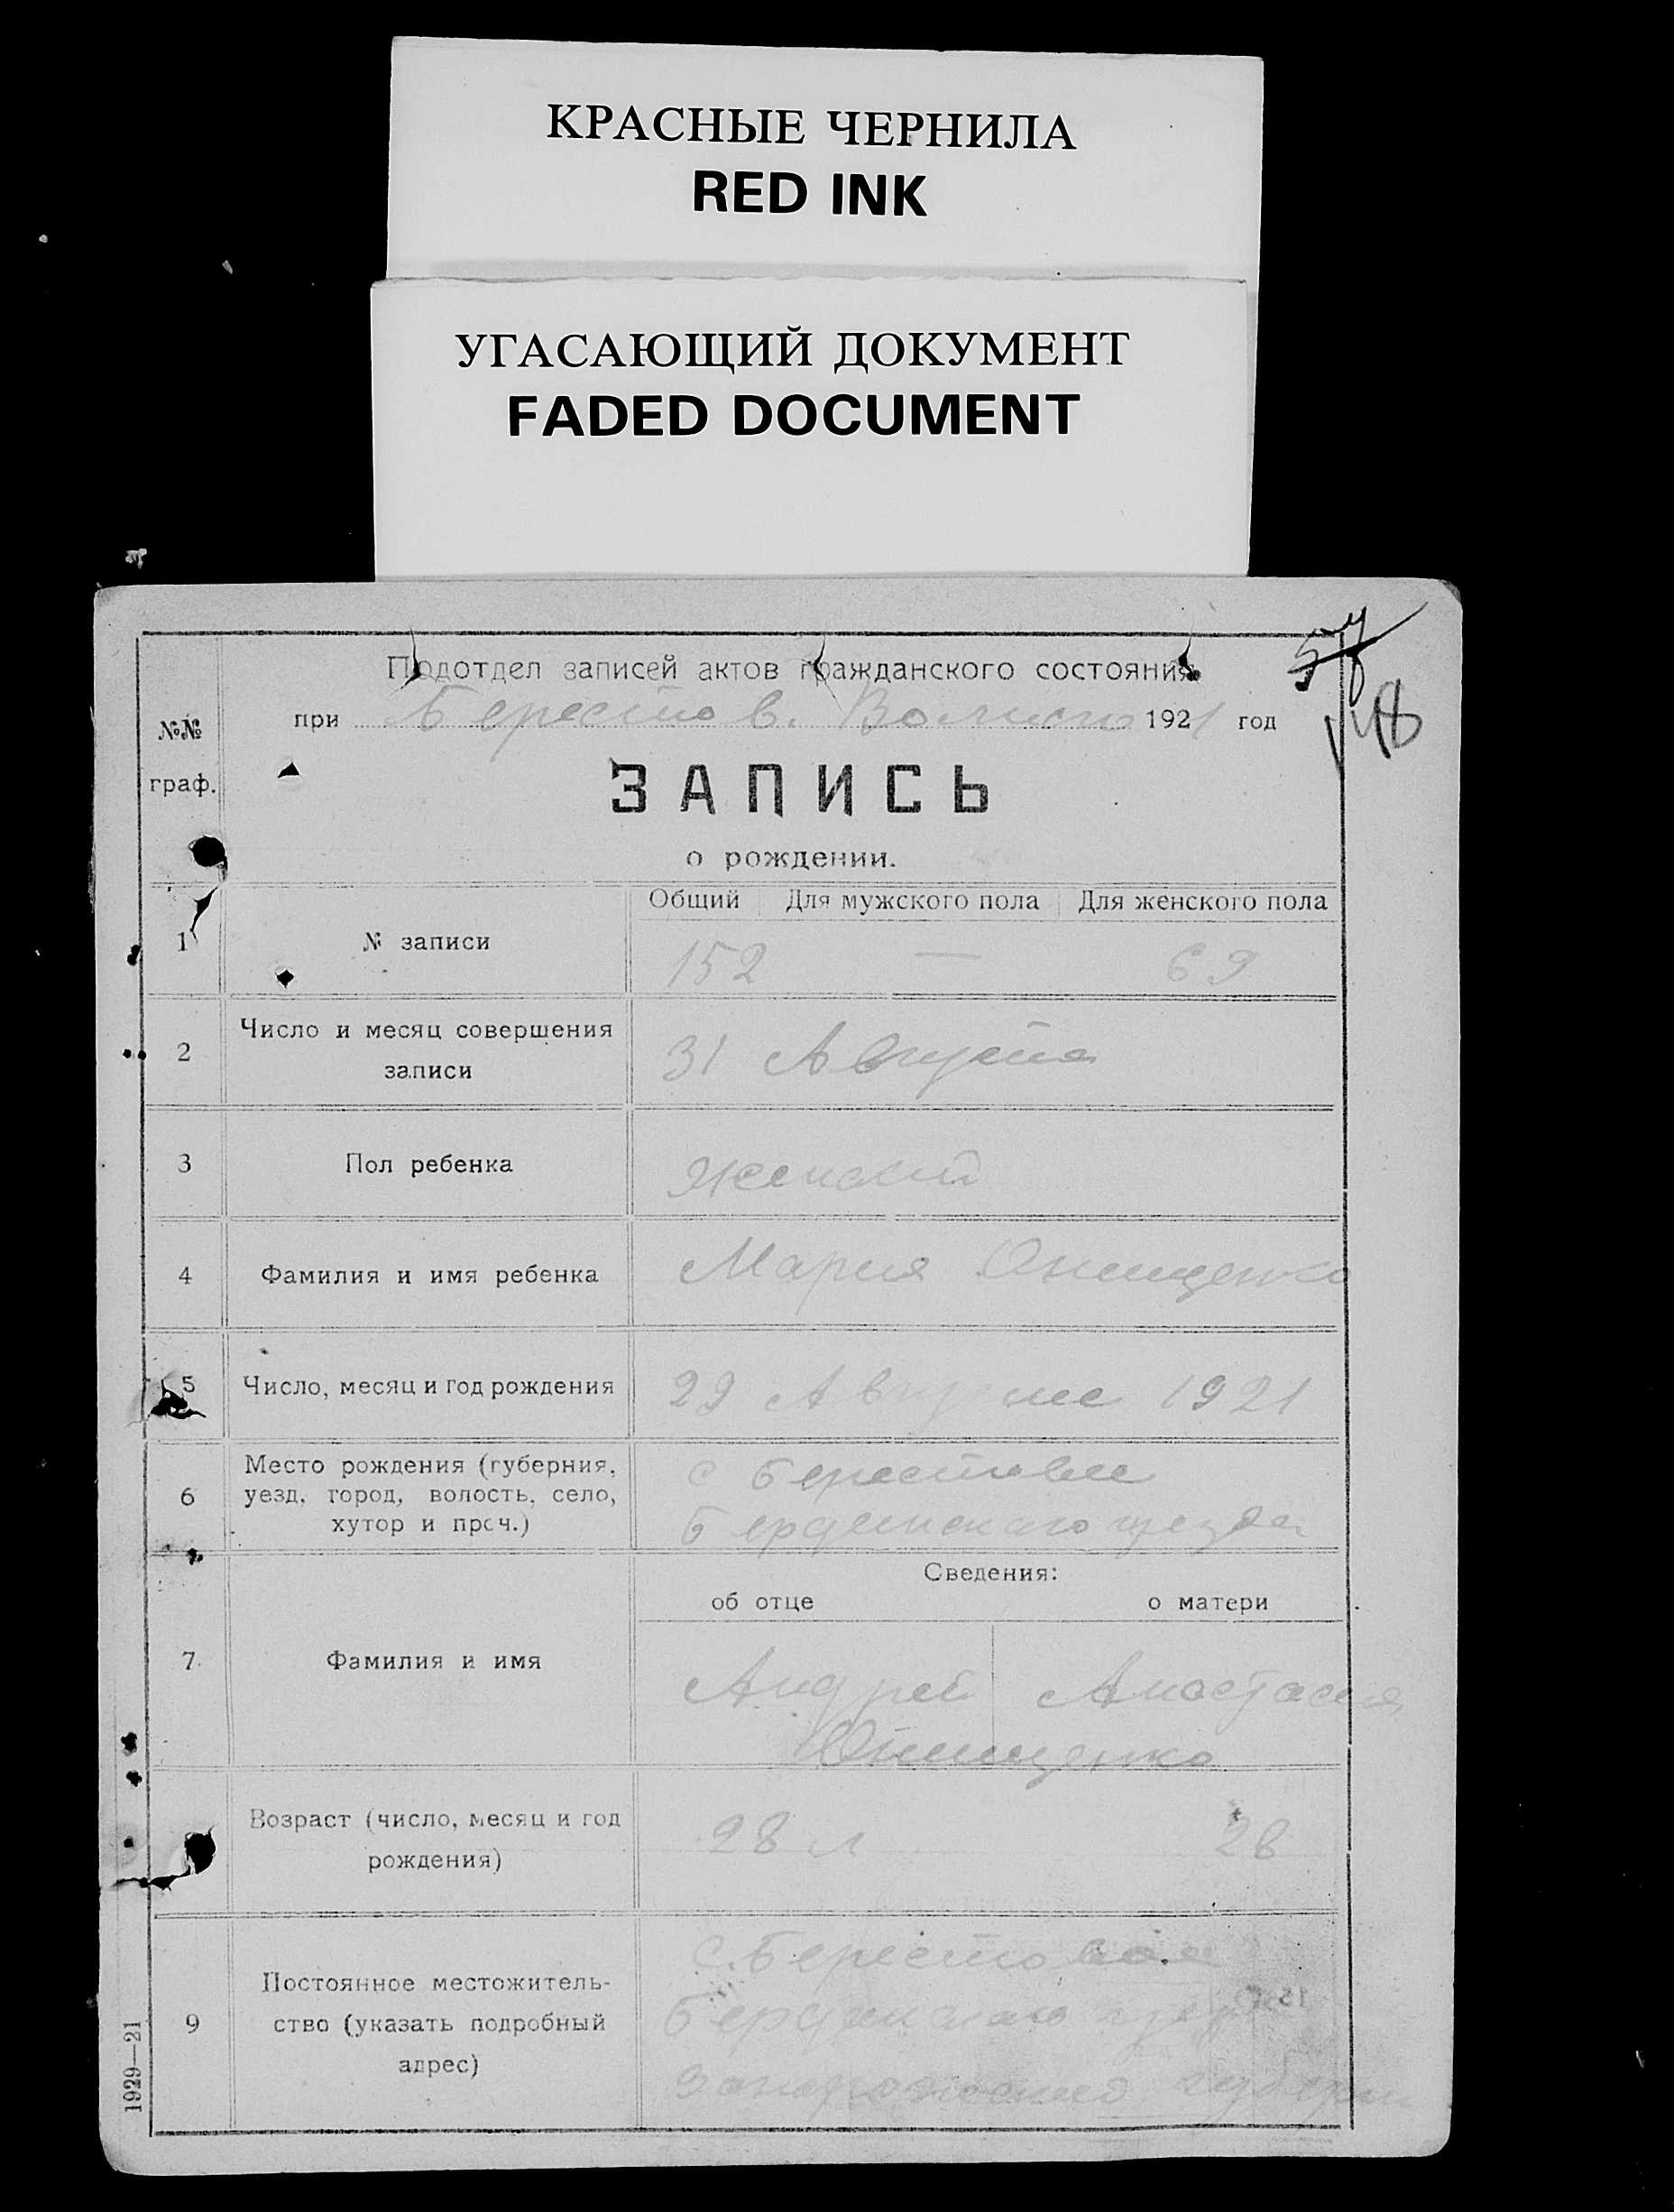 КРАСНЫЕ ЧЕРНИЛА
RED INK
УГАСАЮЩИЙ ДОКУМЕНТ
FADED DOCUMENT
Подотдел записей актов гражданского состояния
148
при Берестов. 1921 год
№№
граф.
ЗАПИСЬ
о рождении.
Общий Для мужского пола Для женского пола
1 № записи 152 — 69
2 Число и месяц совершения записи 31 Августа
3 Пол ребенка женский
4 Фамилия и имя ребенка Мария Онищенко
5 Число, месяц и год рождения 29 Августа 1921
6 Место рождения (губерния, с Берестовое
уезд, город, волость, село, Бердянского уезда
хутор и проч.)
Сведения:
об отце о матери
7 Фамилия и имя Андрей Анастасия
Онищенко
Возраст (число, месяц и год 28 л 28
рождения)
с. Берестовое
Постоянное местожитель-
9 ство (указать подробный Бердянского уезда
адрес)
1929—21